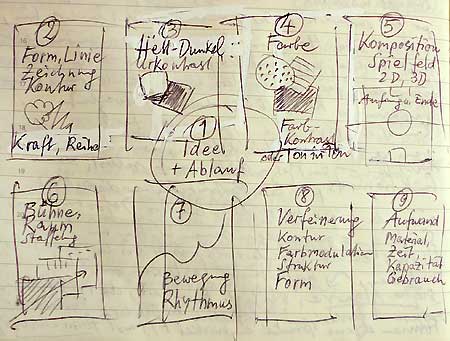 ②
Form, Linie
Zeichnung
Kontur
Kraft, Reihe
③
Hell-Dunkel
Urkontrast
④
Farbe
Farb-
Kontrast
oder Ton in Ton
⑤
Komposition
Spielfeld
2D, 3D
Anfang u. Ende
①
Idee
+ Ablauf
⑥
Bühne,
Raum
Staffelung
⑦
Bewegung
Rhythmus
⑧
Verfeinerung
Kontur
Farbmodulation
Struktur
Form
⑨
Aufwand
Material,
Zeit,
Kapazität
Gebrauch